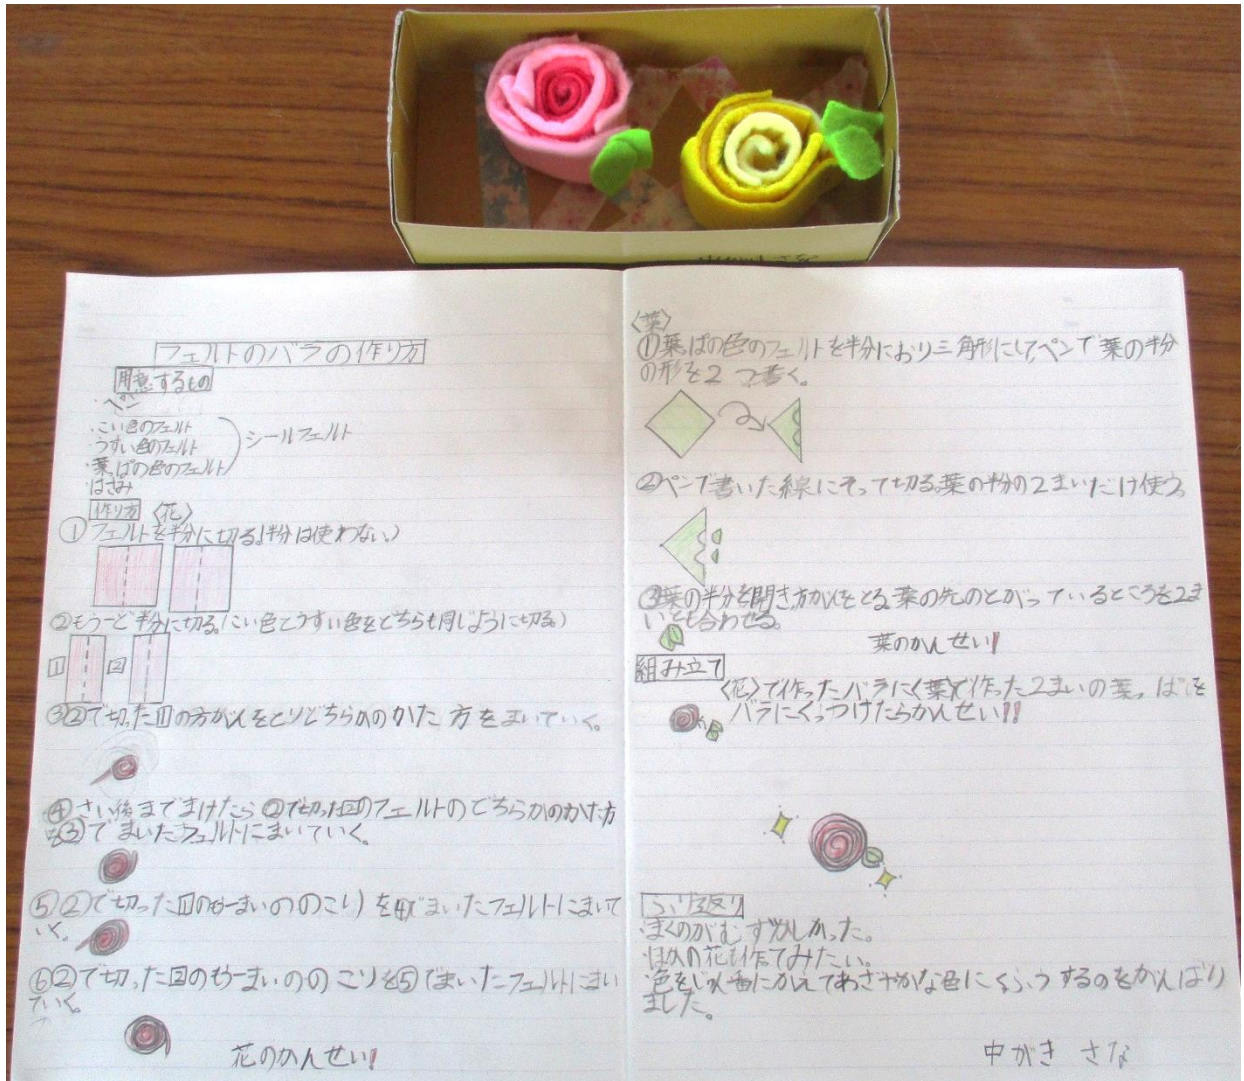 フェルトのバラの作り方
用意するもの
・ペン
・こい色のフェルト
・うすい色のフェルト
・葉っぱの色のフェルト
シールフェルト
・はさみ
作り方 〈花〉
①フェルトを半分に切る。(半分は使わない。)
②もう一ど半分に切る。(こい色とうすい色をどちらも同じように切る)
1 2
③②で切った1の方がんをとりどちらかのかた方をまいていく。
④さい後までまけたら②で切った2のフェルトのどちらかのかた方
を③でまいたフェルトにまいていく。
⑤②で切った1のもう一まいののこりを④でまいたフェルトにまいて
いく。
⑥②で切った2のもう一まいののこりを⑤でまいたフェルトにまい
ていく。
花のかんせい!
〈葉〉
①葉っぱの色のフェルトを半分におり三角形にして、ペンで葉の半分
の形を2つ書く。
②ペンで書いた線にそって切る。葉の半分の2まいだけ使う。
③葉の半分を開き方がんをとる。葉の先のとがっているところを2ま
いとも合わせる。
葉のかんせい!
組み立て
〈花〉で作ったバラに〈葉〉で作った2まいの葉っぱを
バラにくっつけたらかんせい!!
ふり返り
・まくのがむずかしかった。
・ほかの花も作てみたい。
・色をじゅん番にかえてあざやかな色にくふうするのをがんばり
ました。
中がき さな